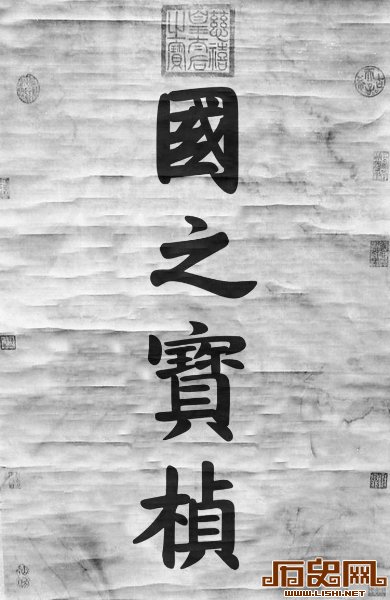 慈禧
皇太后
之寶
國之寶楨
历史网
WWW.LISHI.NET